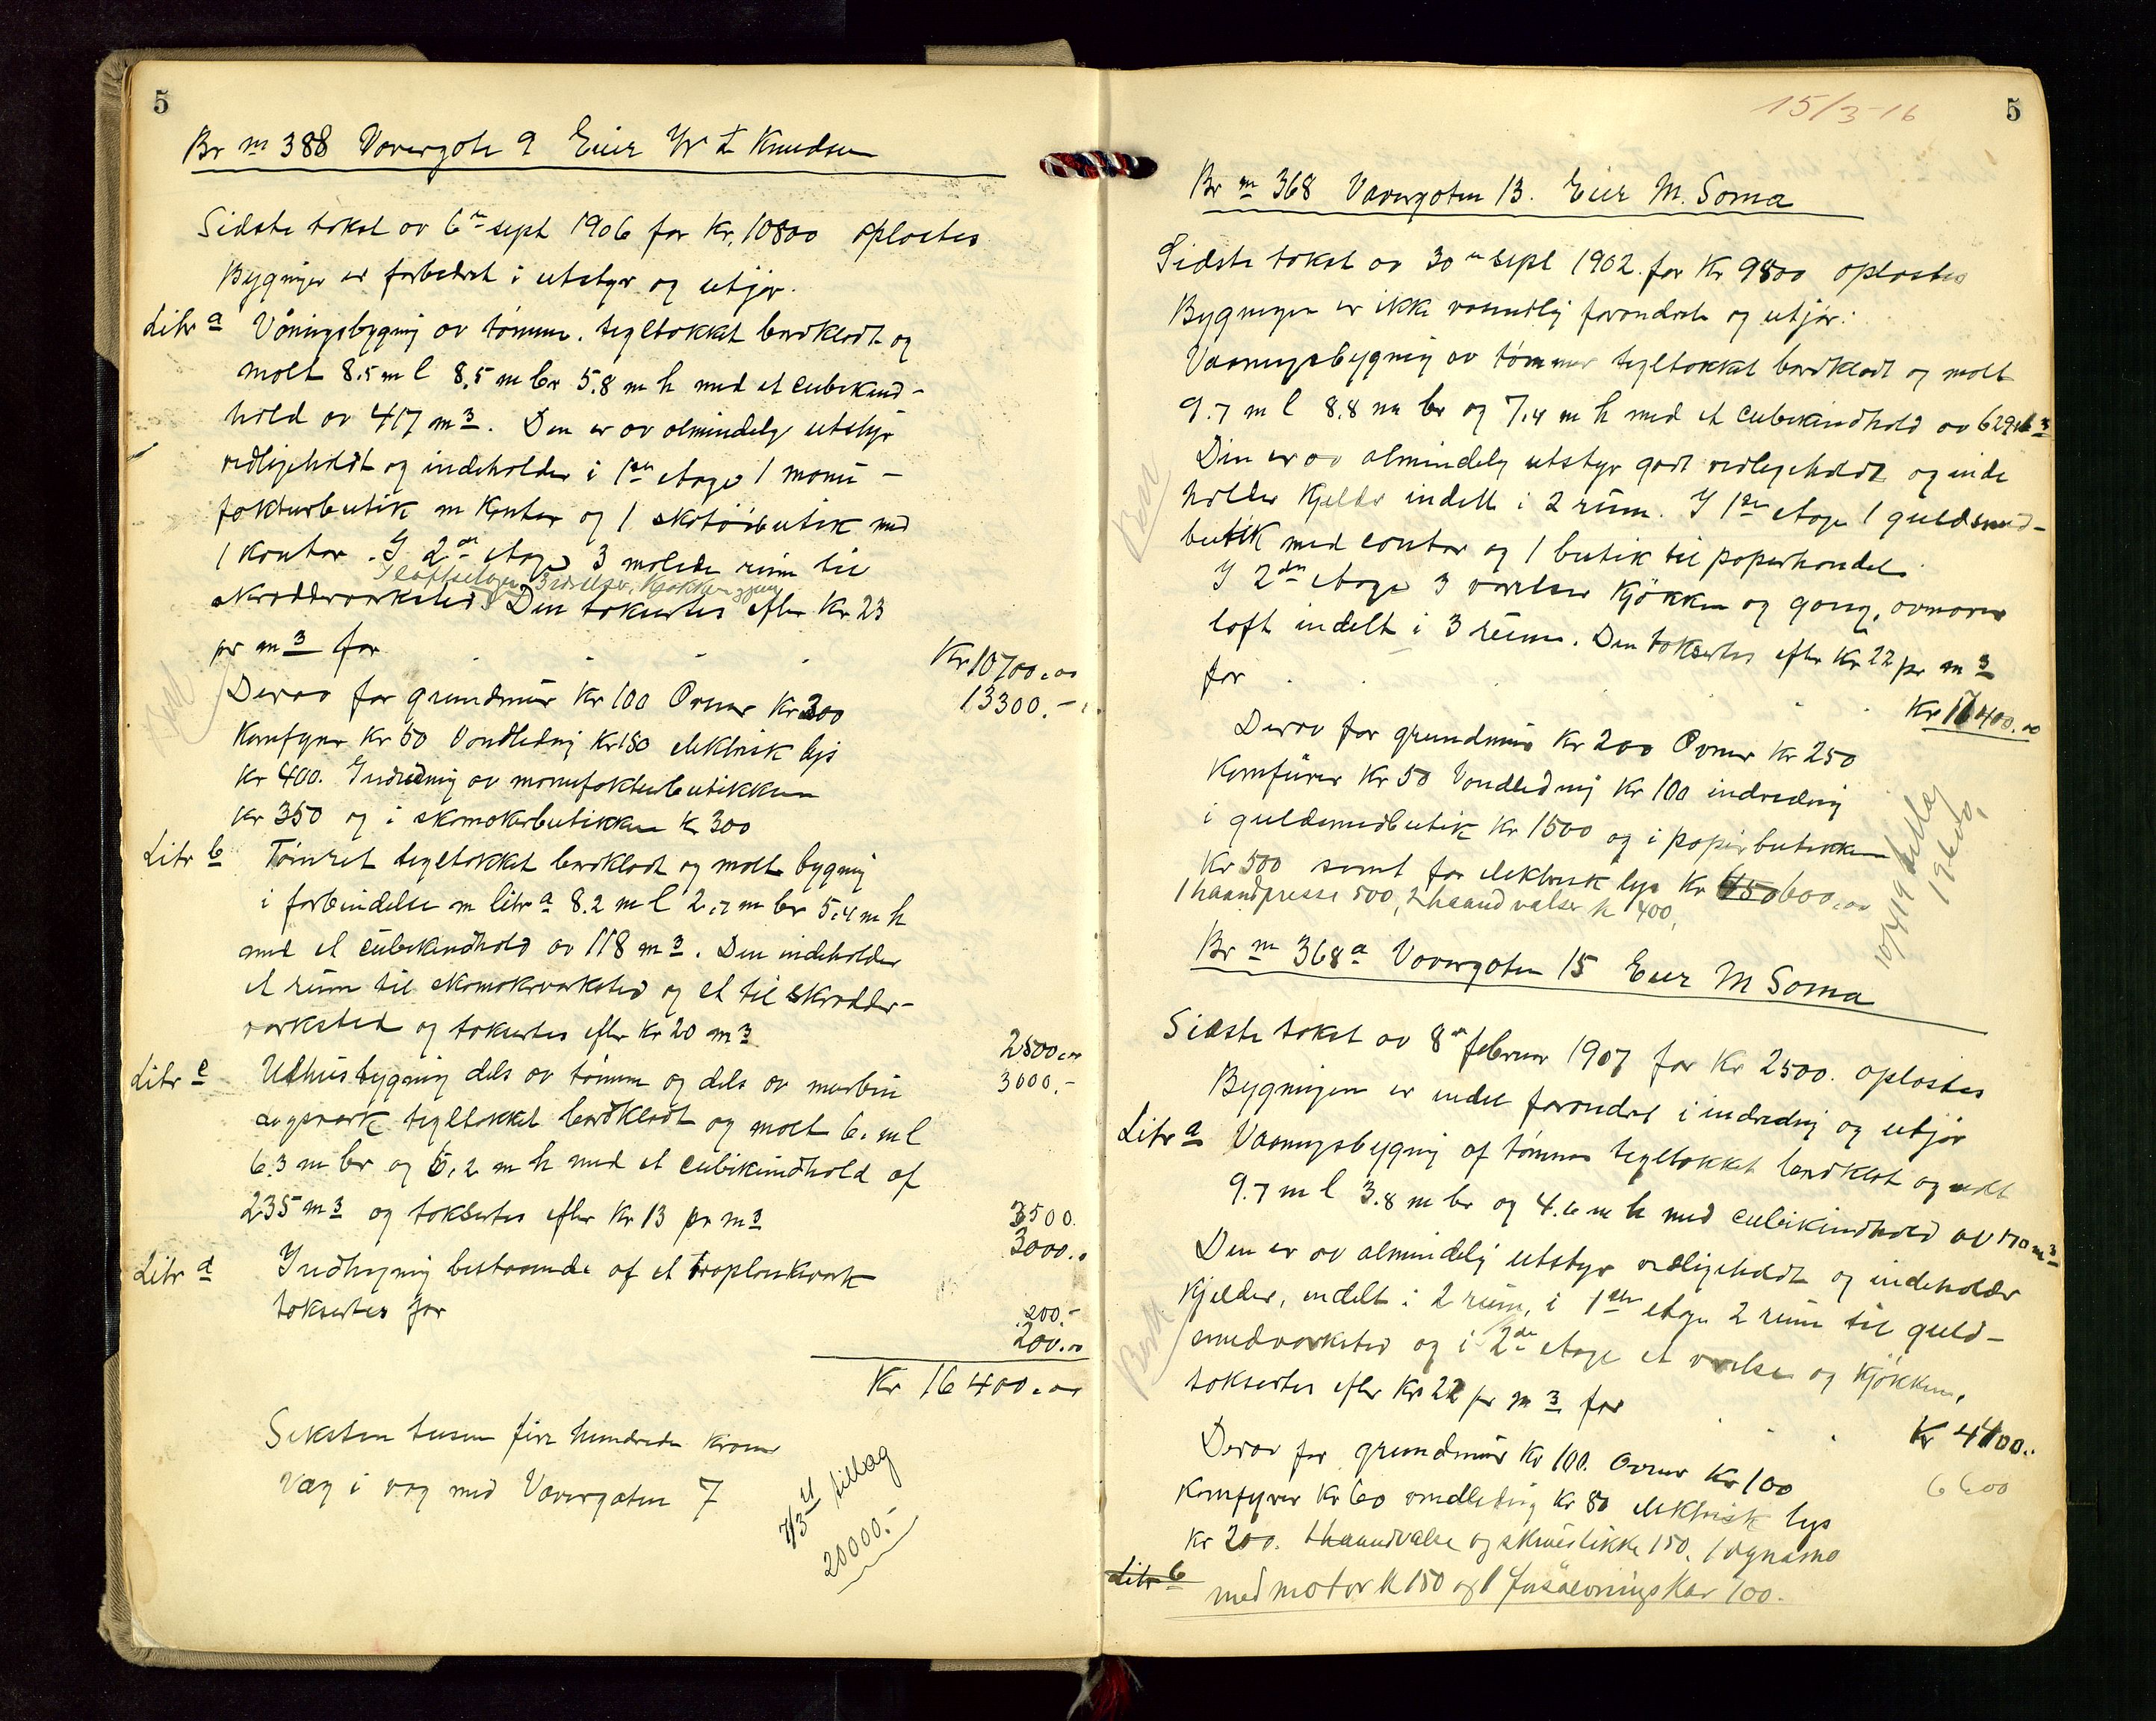 5
Br nr 388 Vavergate 9 Eier Knudsen
Sidste takst av 6te sept 1906 for Kr. 10800 oplæstes
Bygninger er forbedret i utstyr og utjør.
Litr a Våningsbygning av tømmer, tegltækket bordklædt og
malt 8.5 m l 8,5 m br 5.8 m h med et cubikind-
hold av 417 m3. Den er av almindelig utstyr
vedligeholdt og indeholder i 1ste etage 1 manu-
fakturbutik m kontor og 1 skotøibutik med
1 kontor. I 2den etage 3 malede rum til
I loftsetagen 3 værelser, Kjøkken gang
skrædderværksted. Den takseres efter Kr 23
pr m3 for
Kr 10700.00
13300.-
Derav for grundmur Kr 100 Ovner Kr 300
Komfyrer Kr 50 Vandledning Kr 150 elektrisk lys
Kr 400. Indredning av manufakturbutikken
Kr 350 og i skomakerbutikken K 300
Litr b Tømret tegltækket bordklædt og malt bygning
i forbindelse m litr a 8.2 m l 2.7 m br 5.4 m h
med et cubikindhold av 118 m3. Den indeholder
et rum til skomakerværksted og et til skrædder-
værksted og takseres efter Kr 20 m3
2500.00
3000.-
Litr c Uthusbygning dels av tømmer og dels av murbin
dingsværk tegltækket bordklædt og malt 6. m l
6.3 m br og 6.2 m h med et cubikindhold af
235 m3 og takseres efter Kr 13 pr m3
3500.
3000.00
Litr d Indhegning bestaaende af et træplankværk
takseres for
200.-
200.00
Kr 16400.00
Seksten tusen fire hundrede kroner
Væg i væg med Vavergaten 7
7/3 21 tillæg
20000.-
15/3-16
5
Br nr 368 Vavergaten 13. Eier M. Soma
Sidste takst av 30te sept 1902. for Kr 9800 oplæstes
Bygningen er ikke væsentlig forandret og utjør:
Vaaningsbygning av tømmer tegltækket bordklædt og malt
9.7 m l 8.8 m br og 7.4 m h med et cubikindhold av 629 m3
Den er av almindelig utstyr godt vedligeholdt og inde
holder Kjelder indelt i 2 rum. I 1ste etage 1 guldsmed-
butik med contor og 1 butik til papirhandel.
I 2den etage 3 værelser Kjøkken og gang, ovenover
loft indelt i 3 rum. Den takseres efter Kr 22 pr m3
for
Kr 17400.00
Derav for grundmur Kr 200 Ovner Kr 250
Komfürer Kr 50 Vandledning Kr 100 indredning
i guldsmedbutik Kr 1500 og i papirbutikken
Kr 500 samt for elektrisk lys Kr 450 600.00
1 haandpresse 500, 2 haandvalser K 400,
10/4 19 tillæg
19600.
Br nr 368a Vavergaten 15 Eier M Soma
Sidste takst av 8de februar 1907 for Kr 2500. oplæstes
Bygningen er endel forandret i indredning og utjør
Litr a Vaaningsbygning af tømmer tegltækket bordklæt og malt
9.7 m l 3.8 m br og 4.6 m h med cubikindhold av 170 m3
Den er av almindelig utstyr vedligeholdt og indeholder
Kjelder, indelt i 2 rum, i 1ste etage 2 rum til guld-
smedværksted og i 2den etage et værelse og Kjøkken,
takseres efter Kr 22 pr m3 for
Kr 4400..
6600
Derav for grundmur Kr 100. Ovner Kr 100
Komfyrer Kr 60 vandledning Kr 80 elektrisk lys
Kr 200. 1 haandvalse og skruestikke 150. 1 dynamo
Litr b
med motor K 150 og 1 kar 100.